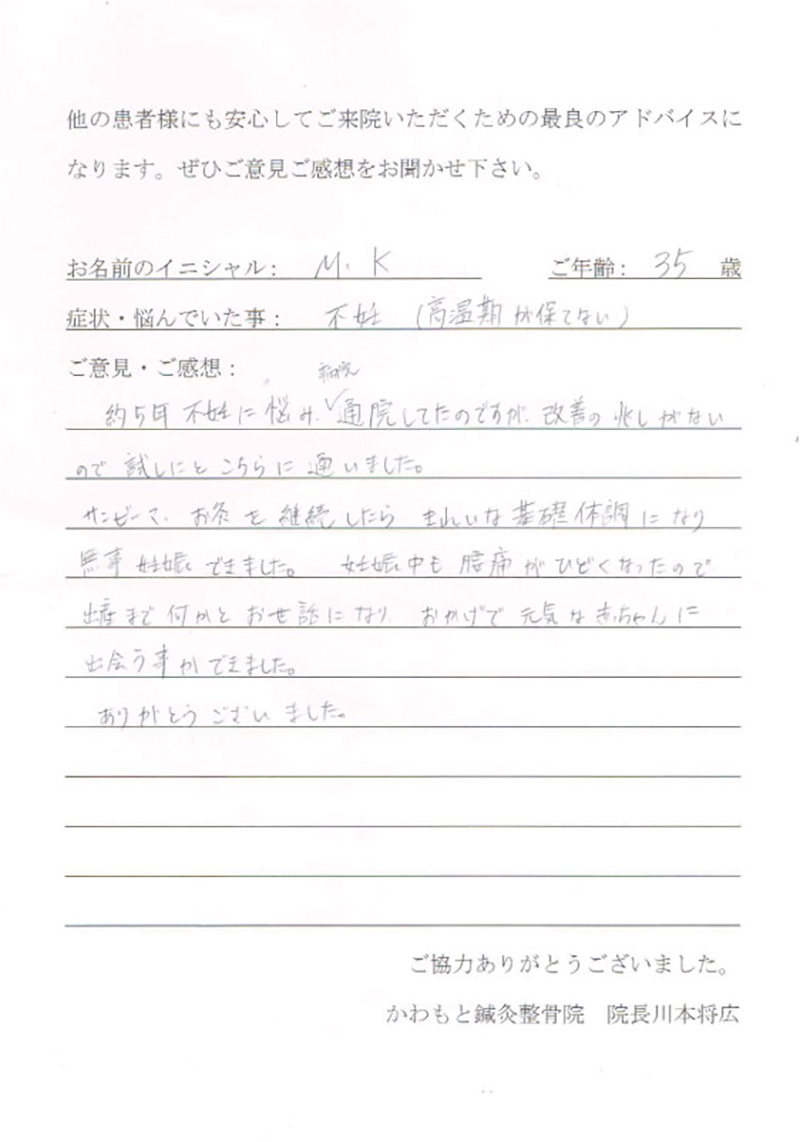 他の患者様にも安心してご来院いただくための最良のアドバイスに
なります。ぜひご意見ご感想をお聞かせ下さい。
お名前のイニシャル： M. K ご年齢： 35 歳
症状・悩んでいた事： 不妊 （高温期が保てない）
ご意見・ご感想：
病院
約5年 不妊に悩み、通院してたのですが、改善の兆しがない
ので 試しにと こちらに 通いました。
サンビーマ、お灸を継続したら きれいな基礎体調になり
無事 妊娠できました。 妊娠中も 腰痛がひどくなったので
出産まで何かとお世話になり、おかげで元気な赤ちゃんに
出会う事ができました。
ありがとうございました。
ご協力ありがとうございました。
かわもと鍼灸整骨院 院長川本将広